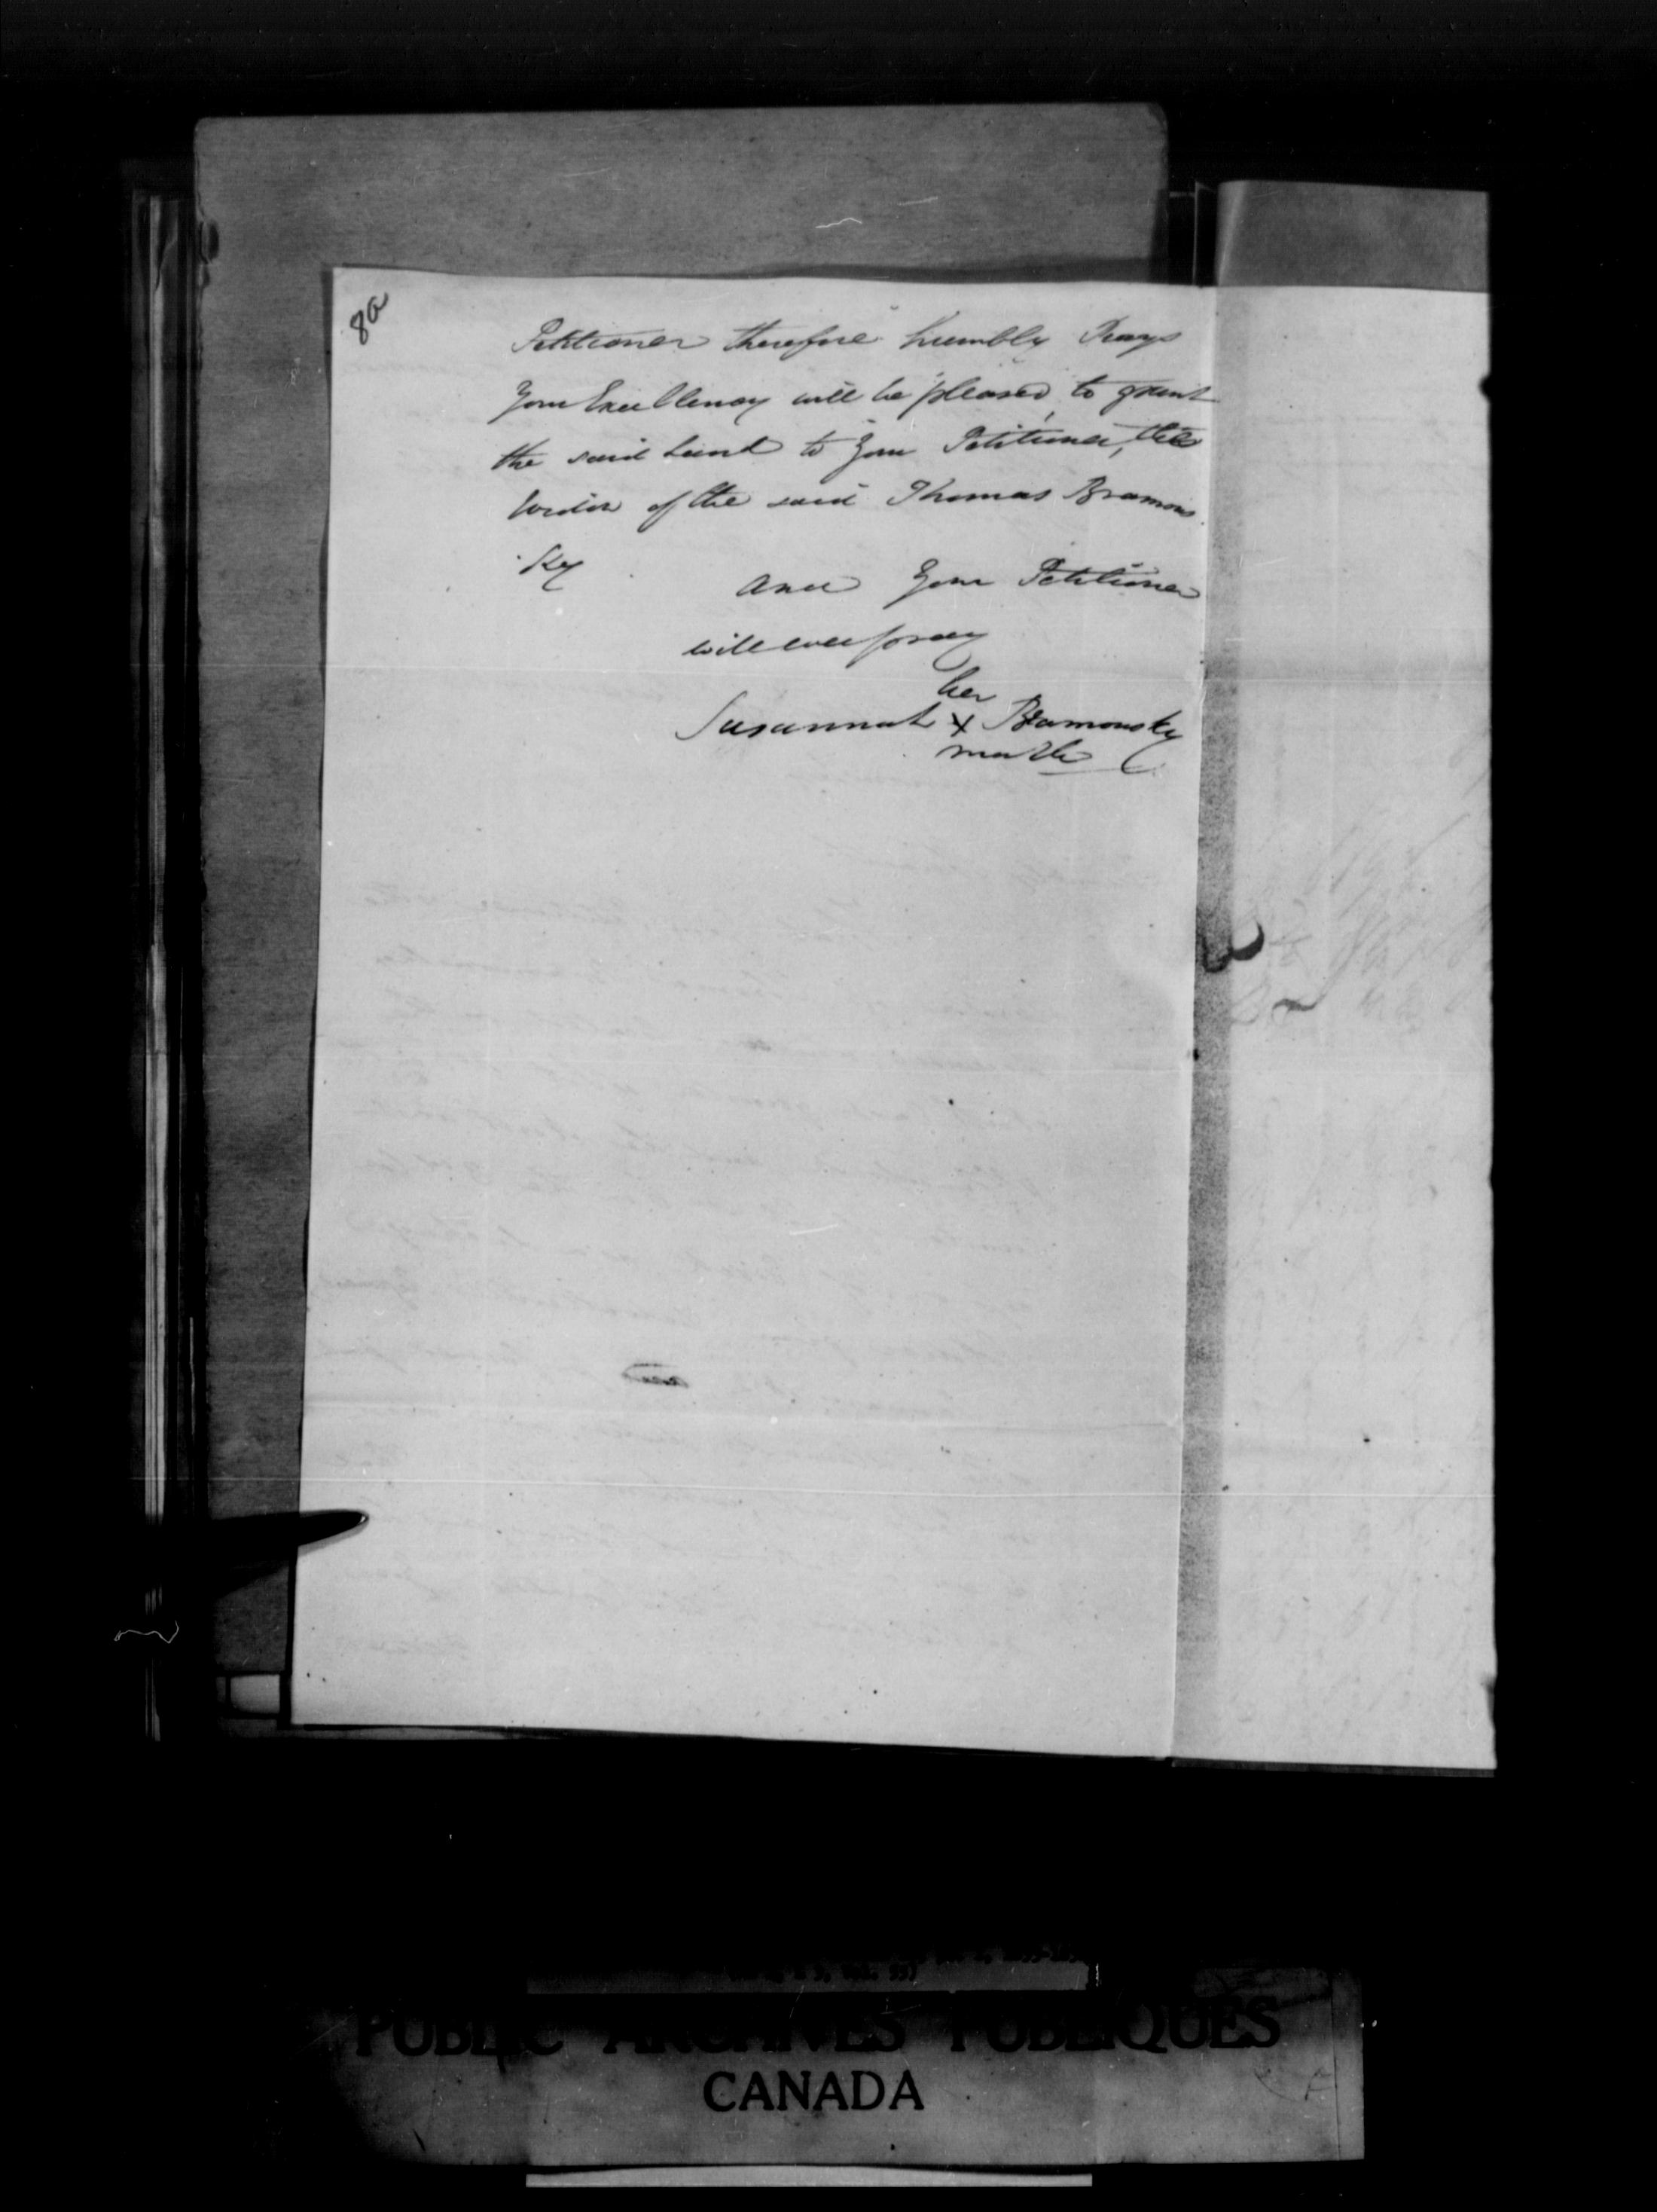 8a
Petitioner therefore humbly Prays
Your Excellency will be pleased to grant
the said Land to Your Petitioner, the
Widow of the said Thomas Bramons
ky
And Your Petitioner
will ever pray
her
Susannah X Bramonsky
mark
PUBLIC ARCHIVES PUBLIQUES
CANADA